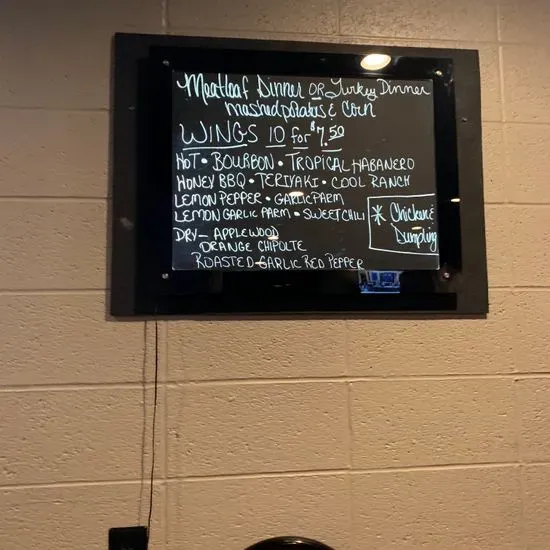 Meatloaf Dinner OR Turkey Dinner
mashed potatoes & Corn
WINGS 10 for $7.50
HOT • BOURBON • TROPICAL HABANERO
HONEY BBQ • TERIYAKI • COOL RANCH
LEMON PEPPER • GARLIC PARM
LEMON GARLIC PARM • SWEET CHILI
DRY - APPLEWOOD
ORANGE CHIPOLTE
ROASTED GARLIC RED PEPPER
* Chicken &
Dumpling